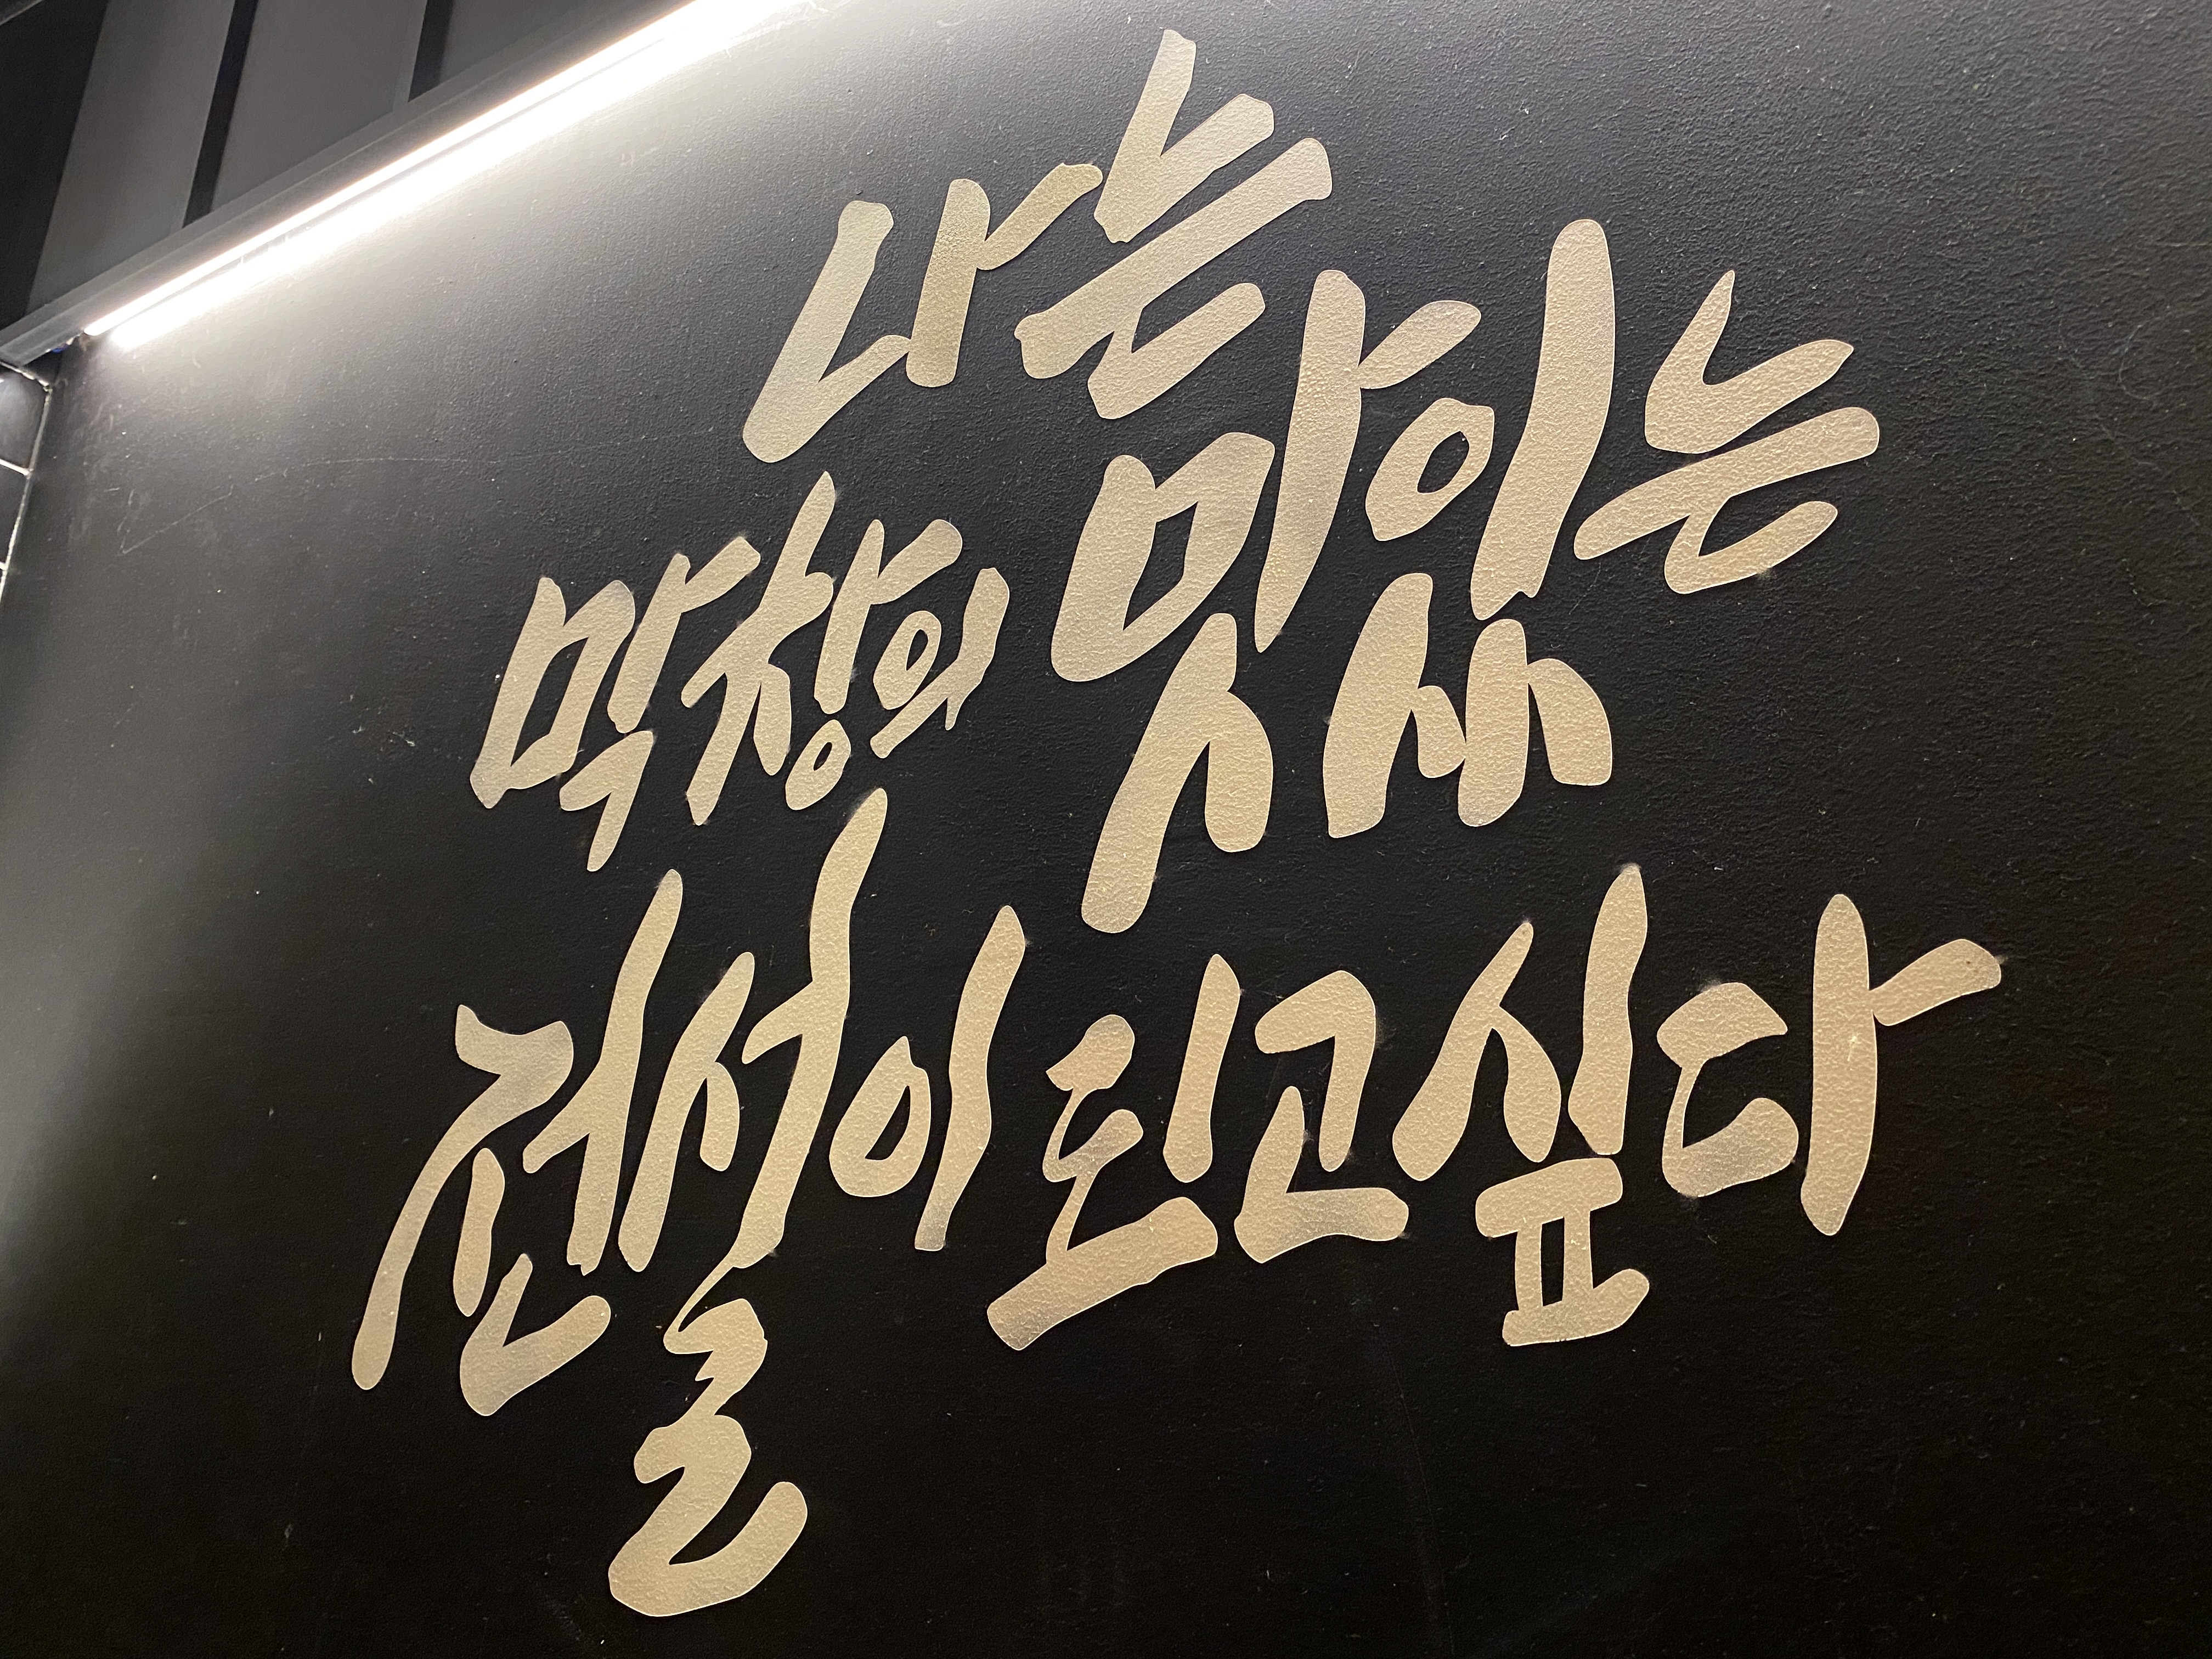 나는
맛있는
막창의
전설이 되고싶다